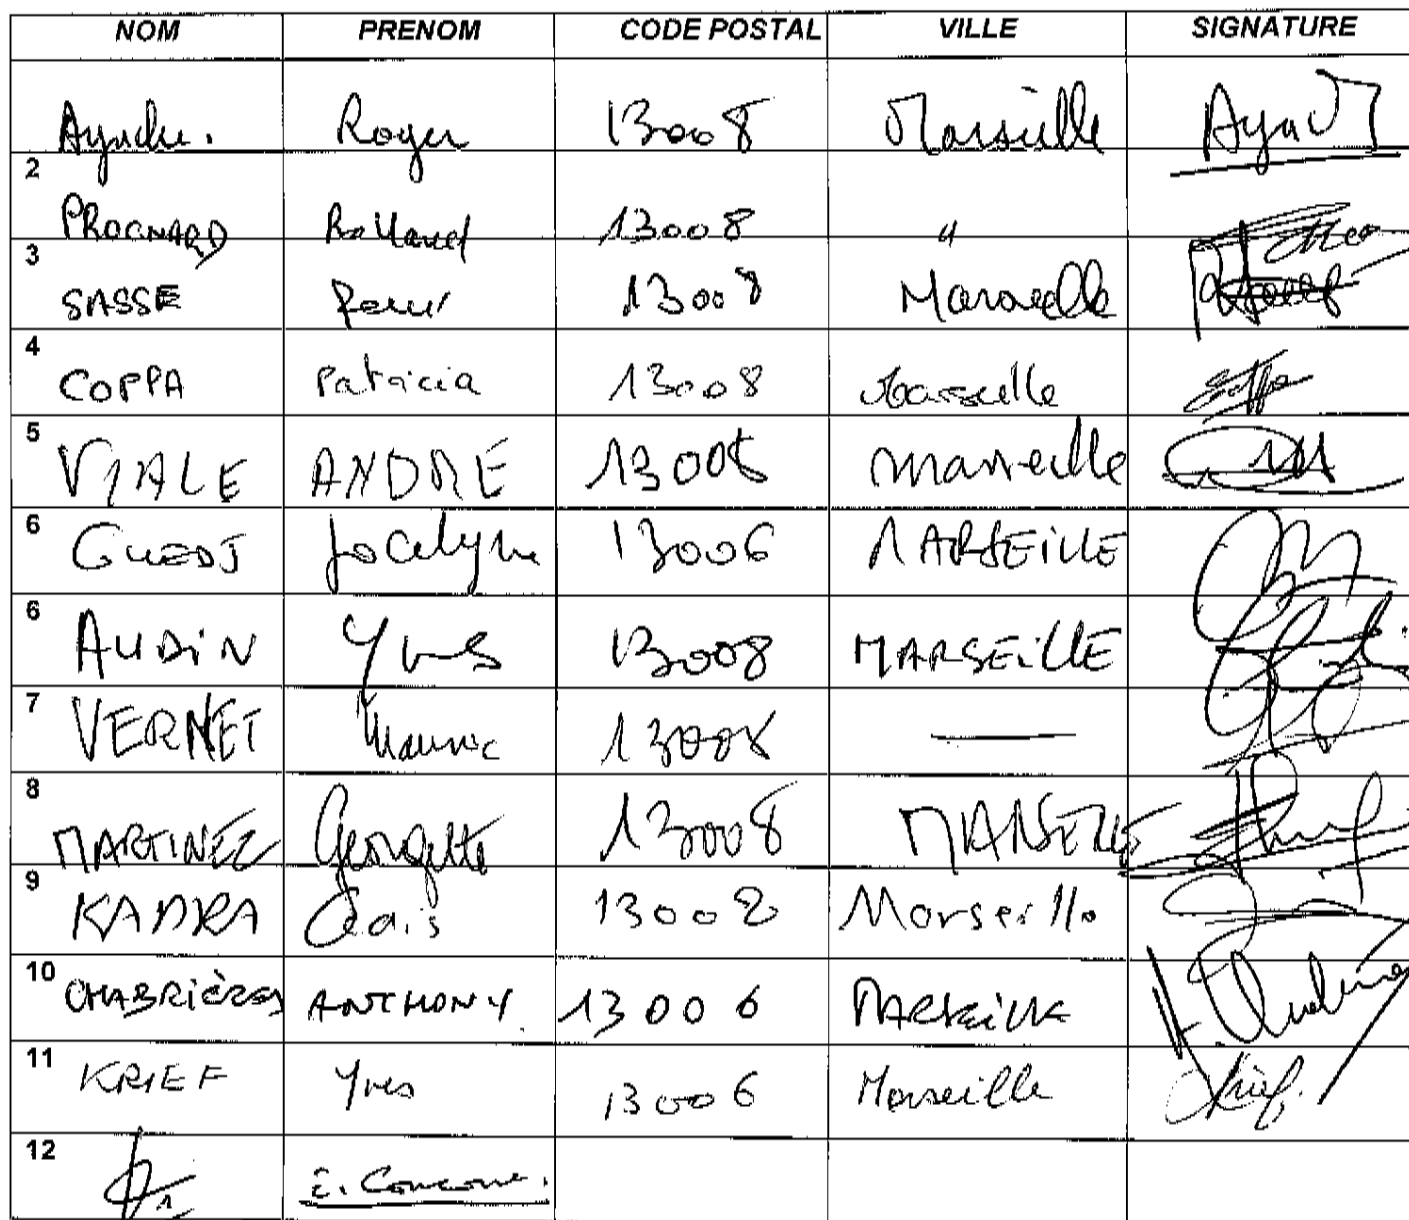 NOM PRENOM CODE POSTAL VILLE SIGNATURE
Ayache. Roger 13008 Marseille
2
PROGNARD Rolland 13008 "
3
SASSE 13008 Marseille
4
COPPA Patricia 13008 Marseille
5
VIALE ANDRÉ 13008 Marseille
6
GUEDJ Jocelyne 13006 MARSEILLE
6
AUDIN Yves 13008 MARSEILLE
7
VERNET Maurice 13008 —
8
MARTINEZ Georgette 13008
9
KADRA 13002 Marseille
10
CHABRIÈRES ANTHONY 13006 MARSEILLE
11
KRIEF Yves 13006 Marseille Krief.
12